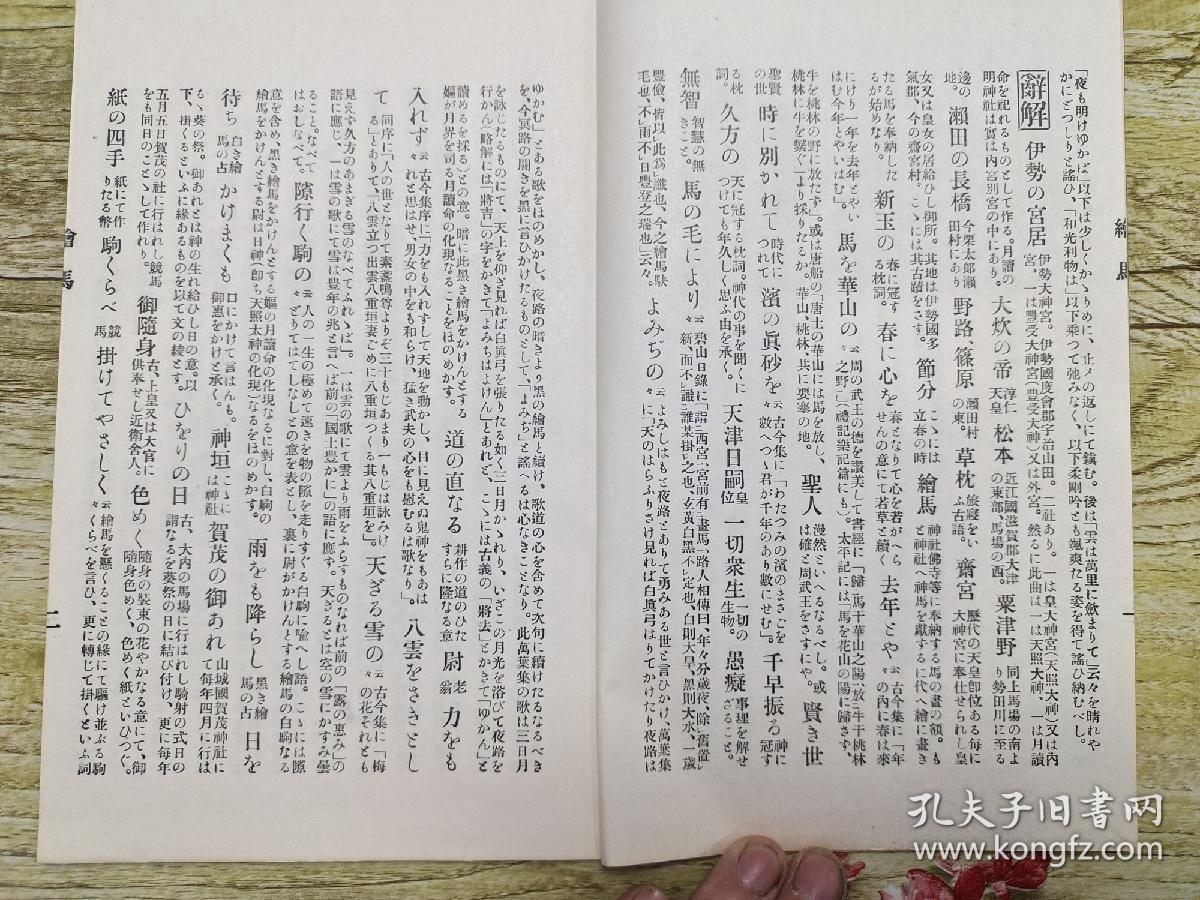 繪馬
一
「夜も明けゆかば」以下は少しくかゝりめに、止メの返しにて鎭むる。後は「雲は萬里に斂まりて」云々を晴れや
かにどつしりと謠ひ、「和光利物は」以下乗つて弛みなく、以下柔剛吟とも颯爽たる姿を得て謠ひ納むべし。
辭解
伊勢の宮居 伊勢大神宮。伊勢國度會郡宇治山田。二社あり。一は皇大神宮(天照大神)又は内
宮、一は豐受大神宮(豐受大神)又は外宮。然るに此曲は、一は天照大神、一は月讀
命を祀れるものとして作る。月讀の
明神社は實は内宮別宮の中にあり。
大炊の帝 淳仁
天皇
松本 近江國滋賀郡大津
の東部、馬場の西。
粟津野 同上馬場の南よ
り勢田川に至る
邊の
地。
瀬田の長橋 今栗太郎瀬
田村にあり
野路、篠原 瀬田村
の東。
草枕 旅寢をい
ふ古語。
齋宮 歴代の天皇卽位ある毎に
大神宮に奉仕せられし皇
女又は皇女の居給ひし御所。其地は伊勢國多
氣郡、今の齋宮村。こゝには其古蹟をさす。
節分 こゝには
立春の時
繪馬 神社佛寺等に奉納する馬の畫の額。も
と神社へ神馬を獻ずるに代へ繪に畫き
たる馬を奉納した
るが始めなり。
新玉の 春に冠す
る枕詞。
春に心を 春となりて心を若がへら
せんの意にて若草と續く
去年とや 云々 古今集に「年
の内に春は來
にけり一年を去年とやい
はむ今年とやいはむ」。
馬を華山の 云々 周の武王の德を讃美して書經に「歸馬于華山之陽放牛于桃林
之野」(禮記樂記篇にも)。太平記には「馬を花山の陽に歸さず、
牛を桃林の野に放たず」。或は唐船の「唐土の華山には馬を放し、
桃林に牛を繋ぐ」より採りたるか。華山、桃林、共に要塞の地。
聖人 漫然といへるなるべし。或
は確と周武王をさすにや。
賢き世
聖賢
の世
時に別かれて 時代に
つれて
濱の眞砂を 云々 古今集に「わたつみの濱のまさごを
數へつゝ君が千年のあり數にせむ」。
千早振る 神に
冠す
る枕
詞。
久方の 天に冠する枕詞。神代の事を聞くに
つけても年久しく思ふ由を承く。
天津日嗣 皇
位
一切衆生 一切の
生物。
愚癡 事理を解せ
ざること。
無智 智慧の無
きこと。
馬の毛により 云々 碧山日錄に「詣西宮、宮前有畫馬、路人相傳曰、年々分歲夜、除舊置
新、而不識誰某掛之也、玄黄白黑不定也、白則大旱、黑則大水、一歲
豐儉、皆以此爲識也、今之繪馬駁
毛也、不雨不日豐登之瑞也」云々。
よみぢの 云々 よみしはもと夜路とありて勇みある世と言ひかけ、萬葉集
に「天のはらふりさけ見れば白眞弓はりてかけたり夜路は
ゆかむ」とある歌をほのめかし、夜路の暗きより黑の繪馬と續け、歌道の心を含めて次句に續けたるなるべき
を、今冥路の闇きを黑に言ひかけたるものとして、「よみぢ」と謠へるは心なきことなり。此萬葉集の歌は三日月
を詠じたるものにて、天上を仰ぎ見れば白眞弓を張りたる如く三日月かゝれり、いざこの月光を浴びて、夜路を
行かん、略解には「將吉」の字をかきて「よみちはよけん」とあれど、こゝには古義の「將去」とかきて「ゆかん」と
讀めるを採る)との意。暗に此黑き繪馬をかけんとする
嫗が月界を司る月讀命の化現なることをほのめかす。
道の直なる 耕作の道のひた
すらに隆なる意
尉 老
翁
力をも
入れず 云々 古今集序に「力をも入れずして天地を動かし、目に見えぬ鬼神をもあは
れと思はせ、男女の中をも和らげ、猛き武夫の心をも慰むるは歌なり」。
八雲をさきとし
て 同序に「人の世となりて素盞鳴尊よりぞ三十もじあまり一もじは詠みけ
る」とありて、「八雲立つ出雲八重垣妻ごめに八重垣つくる其八重垣を」。
天ぎる雪の 云々 古今集に「梅
の花それとも
見えず久方のあまぎる雪のなべてふれゝば」。一は雲の歌にて雲より雨をふらすものなれば前の「露の惠み」の
語に應じ、一は雪の歌にて雪は豐年の兆と言へば前の「國土豐かに」の語に應ず。天ぎるとは空の雪にかすみ曇
ること。なべて
はおしなべて。
隙行く駒の 云々 人の一生の極めて遠きを物の隙を走りすぐる白駒に喩へし語。こゝには隙
どりてはてしなしとの意を表とし、裏に尉がかけんとする繪馬の白駒なる
意を含め、黑き繪馬をかけんとする嫗の月讀命の化現なるに對し、白駒の
繪馬をかけんとする尉は日神(卽ち天照太神の化現)なるをほのめかす。
雨をも降らし 黑き繪
馬の占
日を
待ち 白き繪
馬の占
かけまくも 口にかけて言はんも。
御惠をかけと承く。
神垣 こゝに
は神社
賀茂の御あれ 山城國賀茂神社に
て毎年四月に行は
るゝ葵の祭。御あれとは神の生れ給ひし日の意。以
下、掛くるといふに緣あるものを以て文の綾とす。
ひをりの日 古、大内の馬場に行はれし騎射の式日の
謂なるを葵祭の日に結び付け、更に毎年
五月五日賀茂の社に行はれし競馬
をも同日のことゝして作れり。
御隨身 古、上皇又は大官に
供奉せし近衛舍人。
色めく 隨身の裝束の花やかなる意にて、御
隨身色めく、色めく紙といひつゞく。
紙の四手 紙にて作
りたる幣
駒くらべ 競
馬
掛けてやさしく 云々 繪馬を懸くることの緣にて驅け並ぶる駒
くらべを言ひ、更に轉じて掛くといふ詞
繪馬
二
孔夫子旧书网
www.kongfz.com